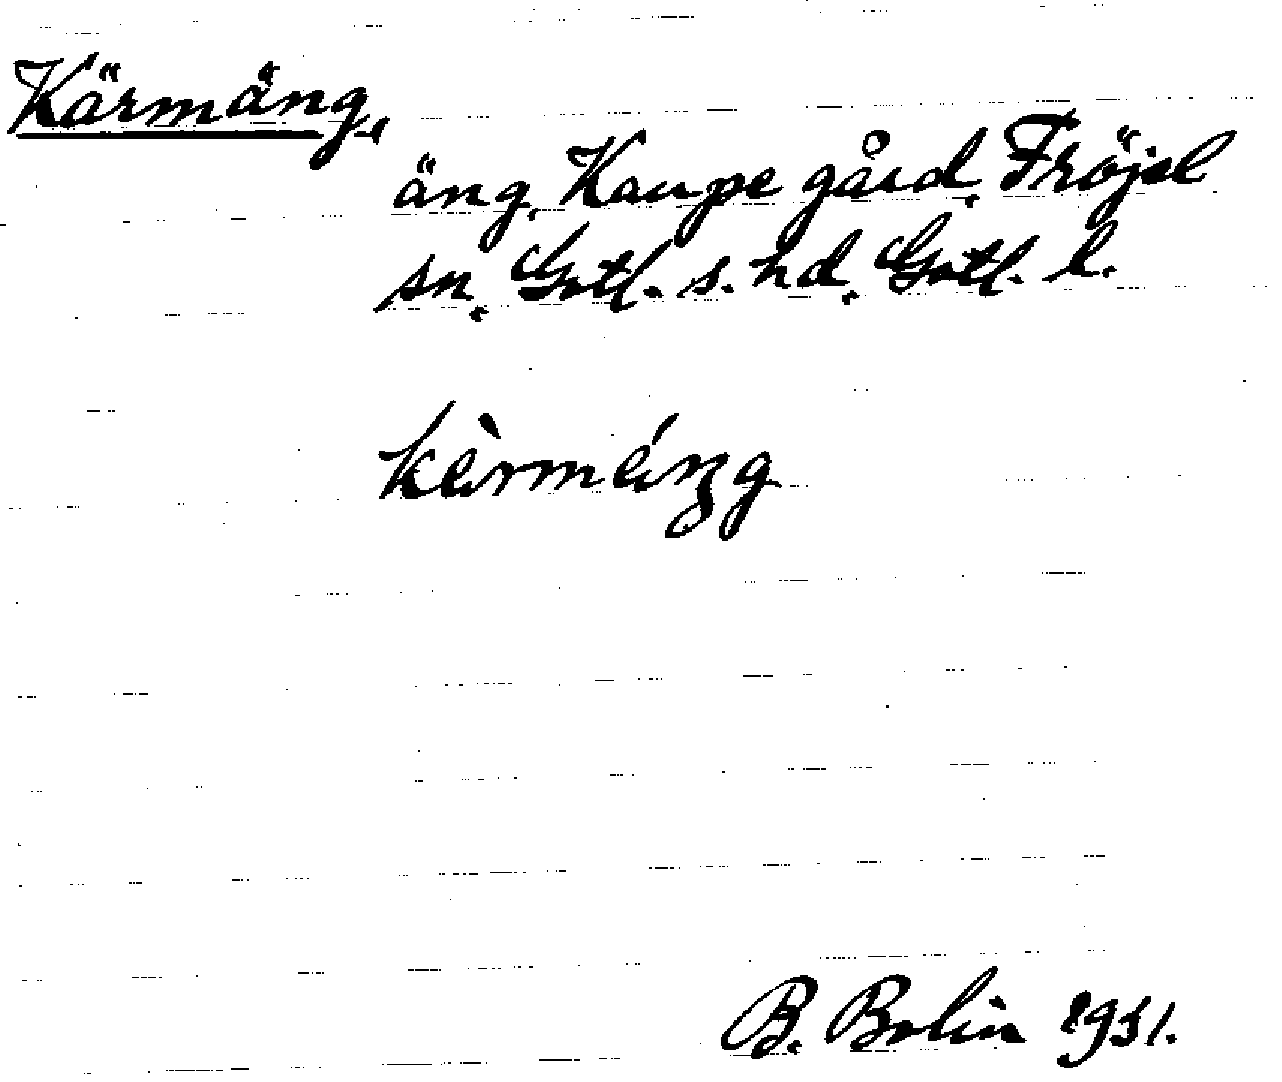 Kärmäng,
äng, Kaupe gård, Fröjel
sn, Gotl. s. hd, Gotl. l.
kè̀rméŋg
B. Bolin 1931.